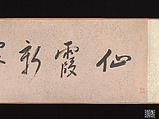 仙霞新